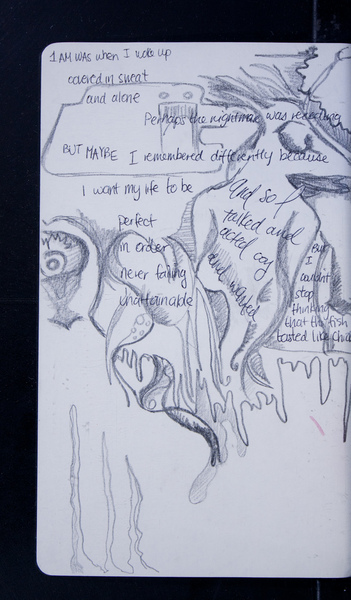 1 AM WAS when I woke up
covered in sweat
and alone
Perhaps the nightmare was
BUT MAYBE I remembered differently because
I want my life to be
perfect
in order
never failing
unattainable
And so I
talked and
acted coy
and waited
BUT
I
couldn't
stop
thinking
that the fish
tasted like